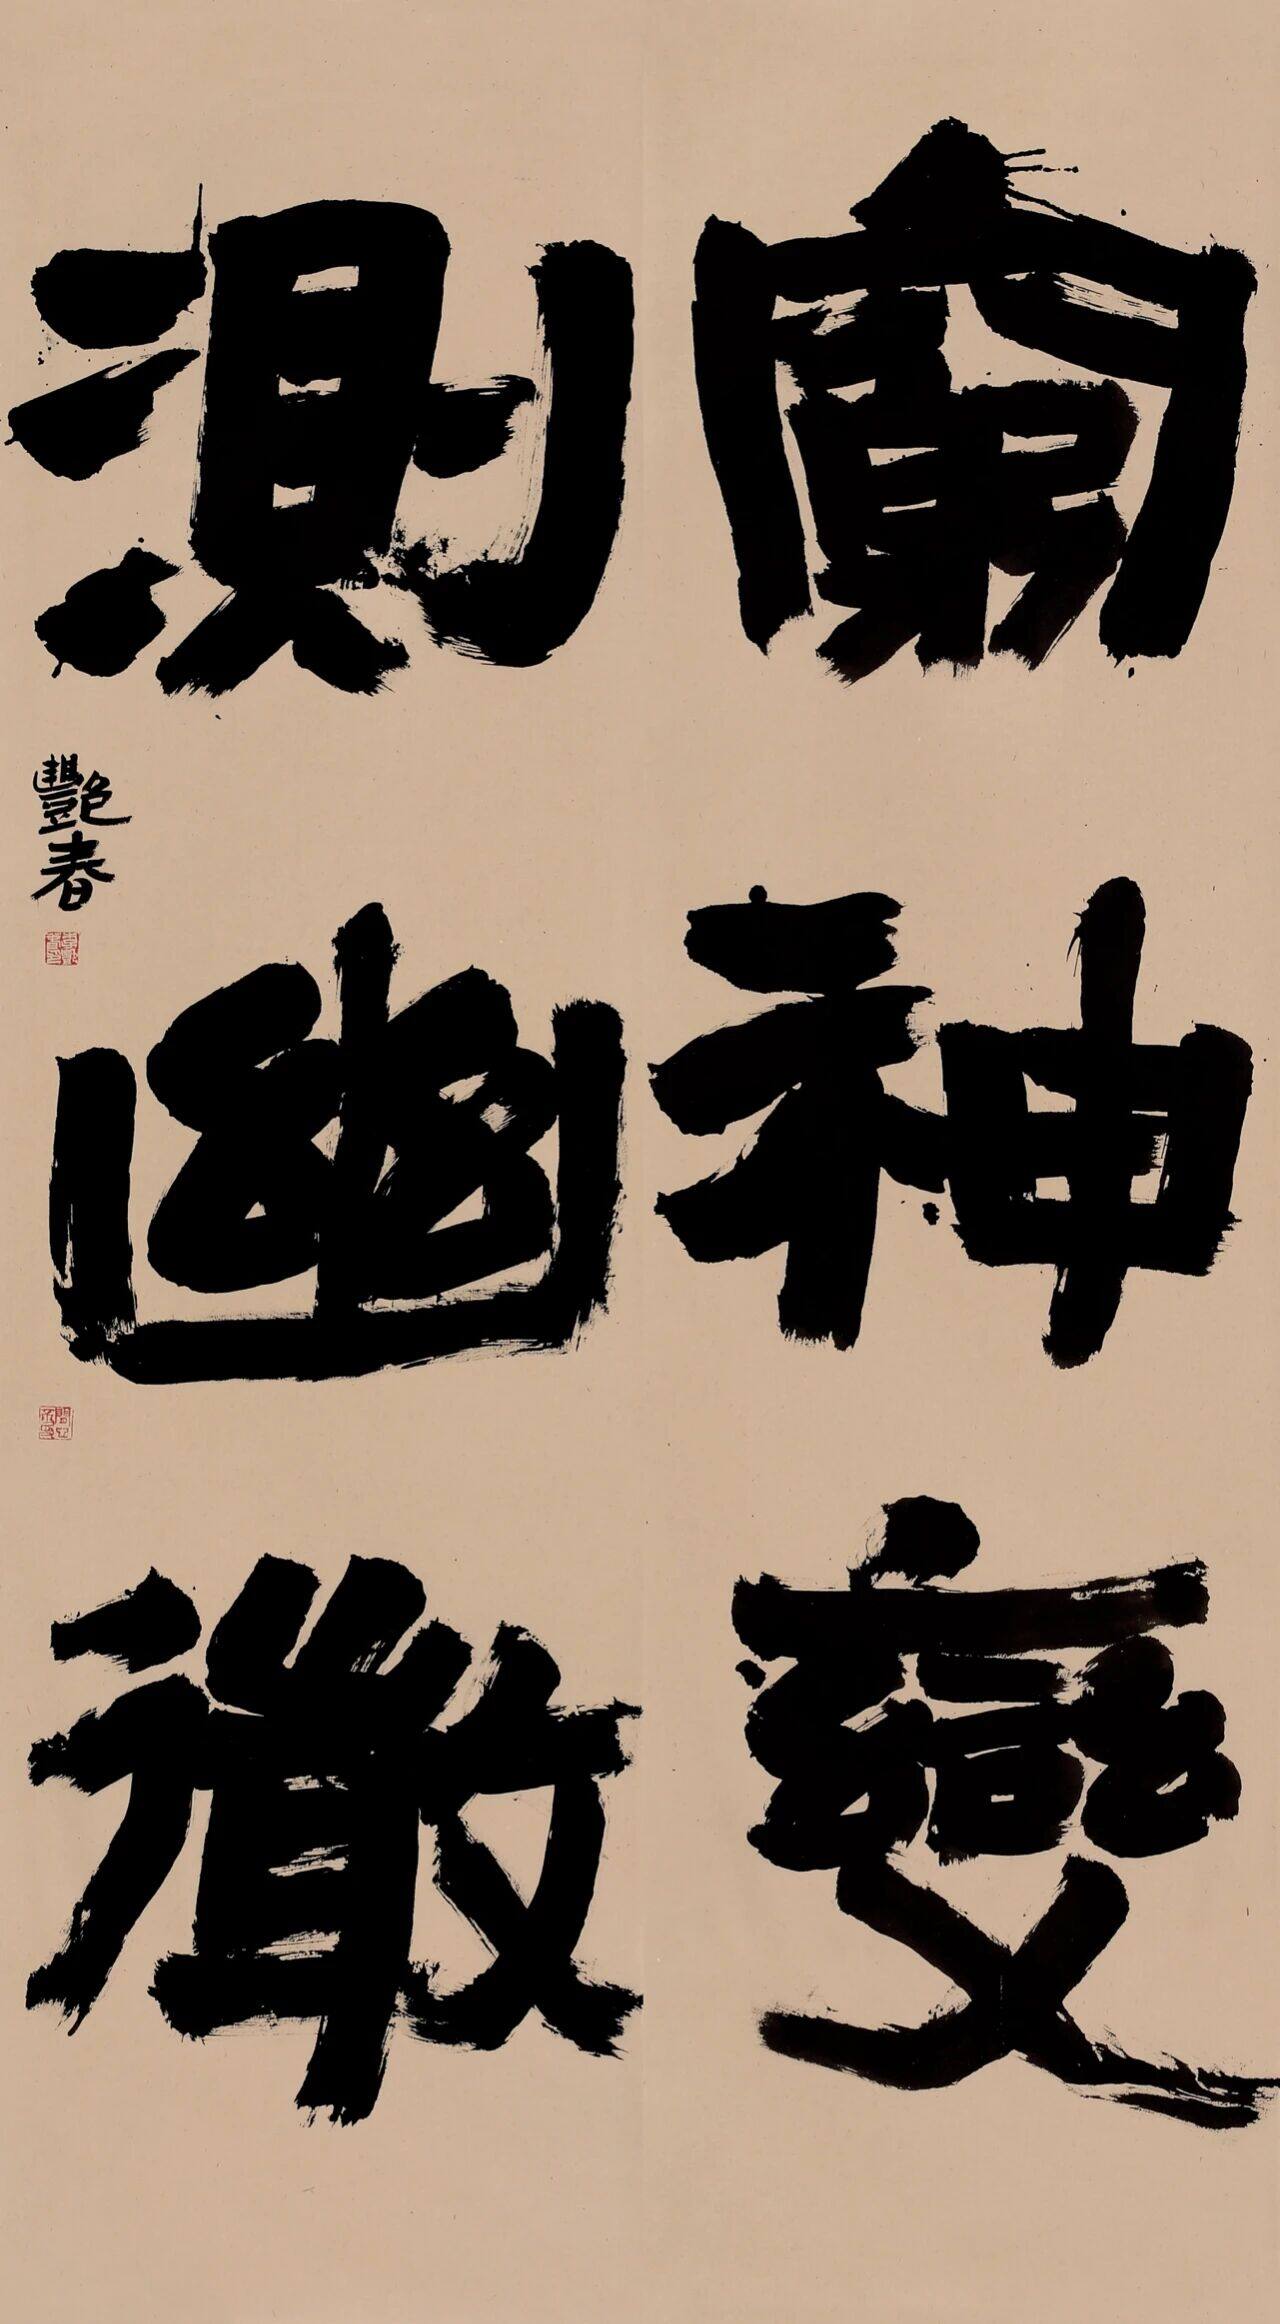 窮神變
測幽微
艷春